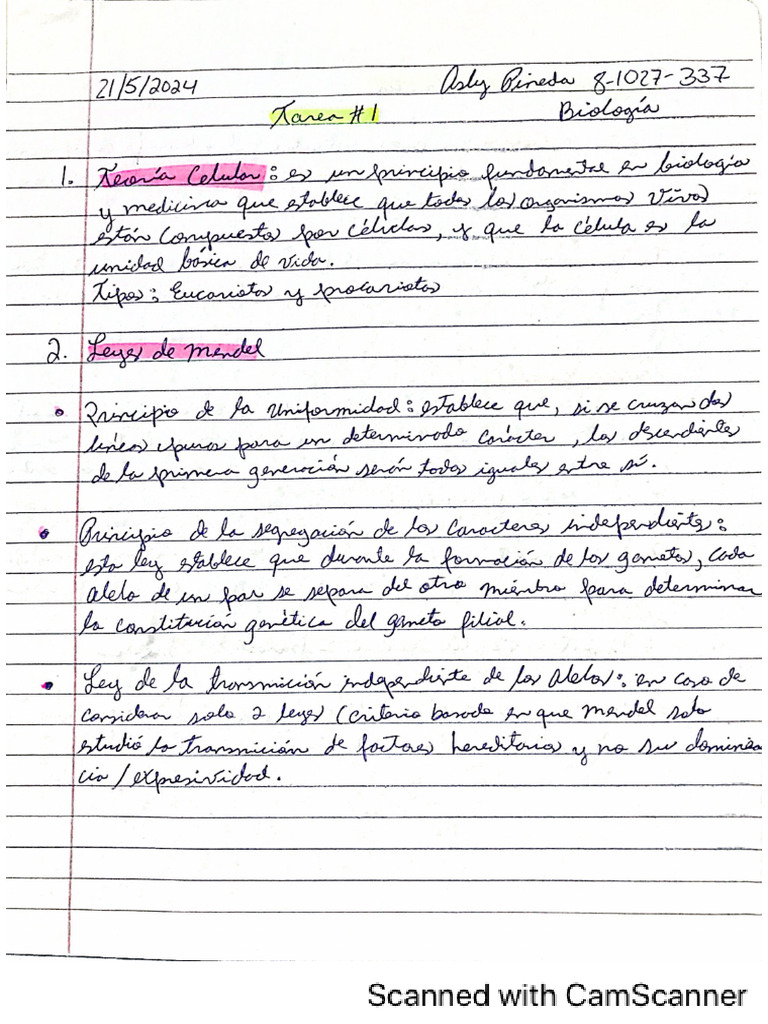 21/5/2024
Asly Pineda 8-1027-337
Tarea #1
Biología
1. Teoría Celular: es un principio fundamental en biología
y medicina que establece que todos los organismos vivos
están compuestos por células, y que la célula es la
unidad básica de vida.
Tipos: Eucariotas y procariotas
2. Leyes de Mendel
• Principio de la Uniformidad: establece que, si se cruzan dos
líneas puras para un determinado carácter, los descendientes
de la primera generación serán todos iguales entre sí.
• Principio de la segregación de los Caracteres independientes:
esta ley establece que durante la formación de los gametos, cada
alelo de un par se separa del otro miembro para determinar
la constitución genética del gameto filial.
• Ley de la transmición independiente de los Alelos: en caso de
considerar solo 2 leyes (criterio basado en que Mendel solo
estudió la transmición de factores hereditarios y no su dominan
cia/expresividad.
Scanned with CamScanner